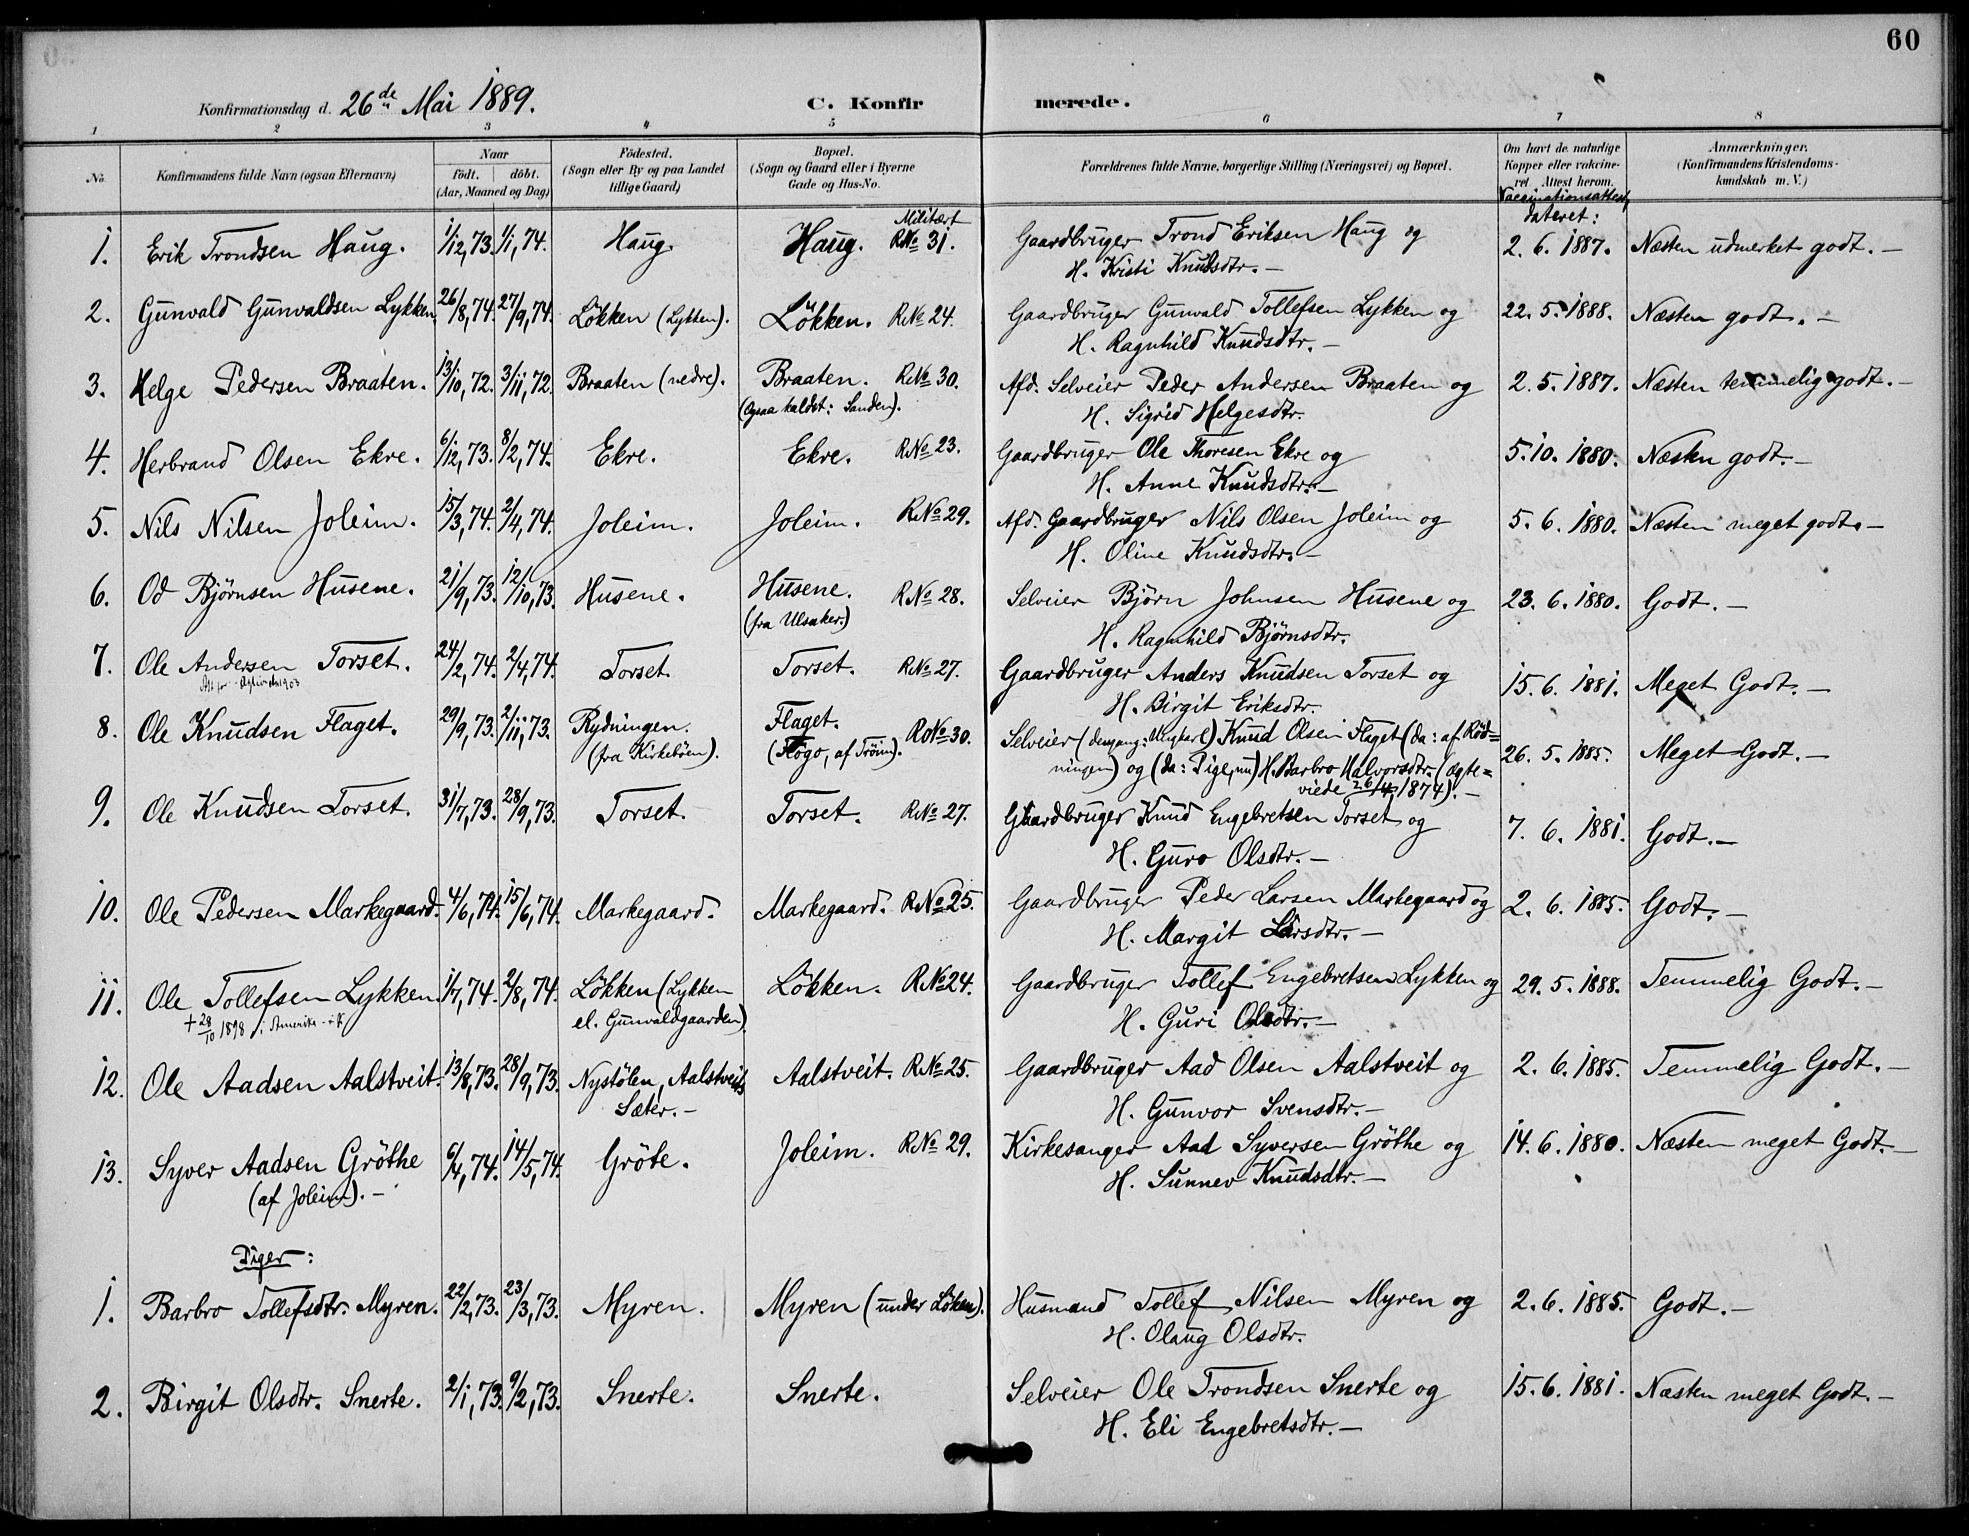 60
Konfirmationsdag d. 26de Mai 1889.
C. Konfirmerede.
1 2 3 4 5 6 7 8
No.
Konfirmandens fulde Navn (ogsaa Efternavn)
Naar
Födt. döbt.
(Aar, Maaned og Dag)
Födested.
(Sogn eller By og paa Landet
tillige Gaard)
Bopæl.
(Sogn og Gaard eller i Byerne
Gade og Hus-No.
Forældrenes fulde Navne, borgerlige Stilling (Næringsvei) og Bopæl.
Om havt de naturlige
Kopper eller vakcine-
ret. Attest herom.
Anmærkninger.
(Konfirmandens Kristendoms-
kundskab m. V.)
Vaccinationsattest,
dateret:
Militært
1. Erik Trondsen Haug. 1/12,73. 1/1,74. Haug. Haug. RNo 31. Gaardbruger Trond Eriksen Haug og 2. 6. 1887. Næsten udmerket godt. —
H. Kristi Knudsdtr. —
2. Gunvald Gunvaldsen Lykken. 26/8,74. 27/9,74. Lökken (Lykken). Lökken. RNo 24. Gaardbruger Gunvald Tollefsen Lykken og 22. 5. 1888. Næsten godt. —
H. Ragnhild Knudsdtr. —
3. Helge Pedersen Braaten. 13/10,72. 3/11,72. Braaten (nedre). Braaten. RNo 30. Afd. Selveier Peder Andersen Braaten og 2. 5. 1887. Næsten temmelig godt. —
(Ogsaa kaldet: Sanden). H. Sigrid Helgesdtr.
4. Herbrand Olsen Ekre. 6/12,73. 8/2,74. Ekre. Ekre. RNo 23. Gaardbruger Ole Thoresen Ekre og 5. 10. 1880. Næsten godt. —
H. Anne Knudsdtr. —
5. Nils Nilsen Joleim. 15/3,74. 2/4,74. Joleim. Joleim. RNo 29. Afd. Gaardbruger Nils Olsen Joleim og 5. 6. 1880. Næsten meget godt. —
H. Oline Knudsdtr. —
6. Od Bjørnsen Husene. 21/9,73. 12/10,73. Husene. Husene. RNo 28. Selveier Bjørn Johnsen Husene og 23. 6. 1880. Godt. —
(fra Ulsaker.) H. Ragnhild Bjørnsdtr.
7. Ole Andersen Torset. 24/2,74. 2/4,74. Torset. Torset. RNo 27. Gaardbruger Anders Knudsen Torset og 15. 6. 1881. Meget Godt. —
1903 H. Birgit Eriksdtr.
8. Ole Knudsen Flaget. 29/9,73. 2/11,73. Rydningen. Flaget. RNo 30. Selveier (dengang: Ungkarl) Knud Olsen Flaget (da: af Röd= 26. 5. 1885. Meget Godt. —
(fra Kirkeböen). (Flögo, af Tröim). ningen) og (da: Pige, nu) H. Barbro Halvorsdtr. (ægte=
viede 26/4, 1874). —
9. Ole Knudsen Torset. 31/7,73. 28/9,73. Torset. Torset. RNo 27. Gaardbruger Knud Engebretsen Torset og 7. 6. 1881. Godt. —
H. Guro Olsdtr. —
10. Ole Pedersen Markegaard. 4/6,74. 15/6,74. Markegaard. Markegaard. RNo 25. Gaardbruger Peder Larsen Markegaard og 2. 6. 1885. Godt. —
H. Margit Larsdtr. —
11. Ole Tollefsen Lykken 1/7,74. 2/8,74. Lökken (Lykken Lökken. RNo 24. Gaardbruger Tollef Engebretsen Lykken og 29. 5. 1888. Temmelig Godt. —
+ 28/10 1898 i Amerika el. Gunvaldgaarden) H. Guri Olsdtr. —
12. Ole Aadsen Aalstveit. 13/8,73. 28/9,73. Nystölen, Aalstveits Aalstveit. RNo 25. Gaardbruger Aad Olsen Aalstveit og 2. 6. 1885. Temmelig Godt. —
Sæter. — H. Gunvor Svensdtr. —
13. Syver Aadsen Gröthe 6/4,74. 14/5,74. Gröte. Joleim. RNo 29. Kirkesanger Aad Syversen Gröthe og 14. 6. 1880. Næsten meget Godt. —
(af Joleim). — H. Sunnev Knudsdtr. —
Piger:
1. Barbro Tollefsdtr. Myren. 22/2,73. 23/3,73. Myren. Myren (under Löken). Husmand Tollef Nilsen Myren og 2. 6. 1885. Godt. —
H. Olaug Olsdtr.
2. Birgit Olsdtr. Snerte. 2/1,73. 9/2,73. Snerte. Snerte. Selveier Ole Trondsen Snerte og 15. 6. 1881. Næsten meget Godt. —
H. Eli Engebretsdtr. —